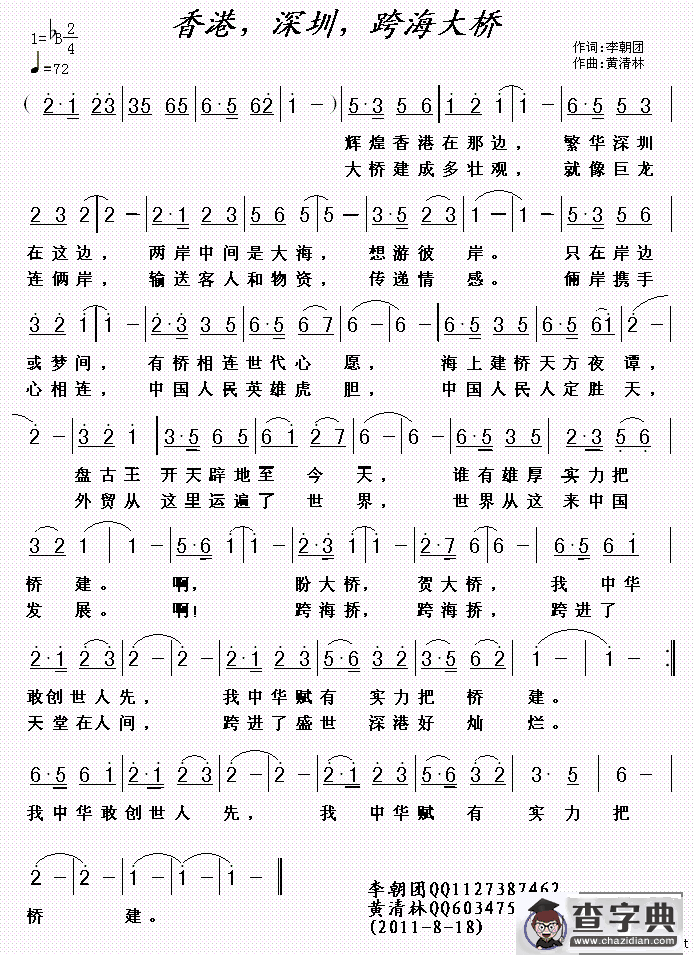 香港，深圳，跨海大桥
1=♭B 2/4
♩=72
作词:李朝团
作曲:黄清林
( 2·1 23 | 35 65 | 6·5 62 | 1 - ) | 5·3 5 6 | 1 2 1 | 1 - | 6·5 5 3 |
辉煌香港在那边，繁华深圳
大桥建成多壮观，就像巨龙
2 3 2 | 2 - | 2·1 2 3 | 5 6 5 | 5 - | 3·5 2 3 | 1 - | 1 - | 5·3 5 6 |
在这边，两岸中间是大海，想游彼岸。只在岸边
连俩岸，输送客人和物资，传递情感。俩岸携手
3 2 1 | 1 - | 2·3 3 5 | 6·5 6 7 | 6 - | 6 - | 3·5 5 6 | 6·5 6 1 | 2 - |
或梦间，有桥相连世代心愿，海上建桥天方夜谭，
心相连，中国人民英雄虎胆，中国人民人定胜天，
2 - | 3 2 1 | 3·5 5 6 | 6 1 2 7 | 6 - | 6 - | 3·5 5 6 | 2·3 5 6 |
盘古王开天辟地至今天，谁有雄厚实力把
外贸从这里运遍了世界，世界从这来中国
3 2 1 | 1 - | 5·6 1 | 1 - | 2·3 1 | 1 - | 2·7 6 | 6 - | 5·6 6 1 |
桥建。啊，盼大桥，贺大桥，我中华
发展。啊!跨海挢，跨海挢，跨进了
2·1 2 3 | 2 - | 2 - | 2·1 2 3 | 5·6 3 2 | 3·5 6 2 | 1 - | 1 - :‖
敢创世人先，我中华赋有实力把桥建。
天堂在人间，跨进了盛世深港好灿烂。
6·5 6 1 | 2·1 2 3 | 2 - | 2 - | 2·1 2 3 | 5·6 3 2 | 3· 5 | 6 - |
我中华敢创世人先，我中华赋有实力把
2 - | 2 - | 1 - | 1 - ‖
桥建。
李朝团QQ1127387462
黄清林QQ603475
(2011-8-18)
查字典
www.chazidian.com
t